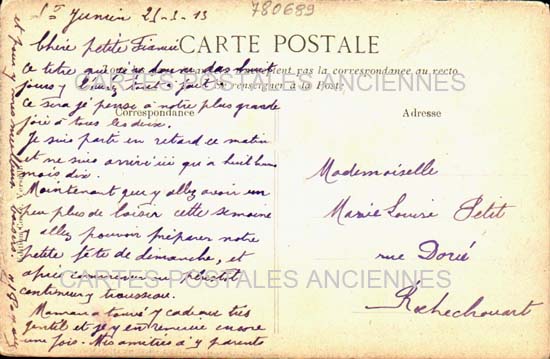 St Junien 25-3-13
780689
Chère petite Fiancée
CARTE POSTALE
Ce titre que je ne donne dans huit
pas la correspondance au recto
jours y l'aurez tout à fait
renseigner à la Poste
CARTES POSTALES ANCIENNES
Ce sera je pense à notre plus grande
Correspondance
Adresse
joie à tous les deux.
Je suis parti en retard ce matin
et ne suis arrivé ici qu'à huit heures
mois dix.
Maintenant que y allez avoir un
peu plus de loisir cette semaine
y allez pouvoir préparer notre
petite fête de dimanche, et
après commencer ou plutôt
continuer trousseau.
Maman a trouvé y cadeau très
gentil et je y en remercie encore
une fois. Mes amitiés à y parents
Mademoiselle
Marie Louise Petit
rue Dorié
Rochechouart
CARTES POSTALES ANCIENNES